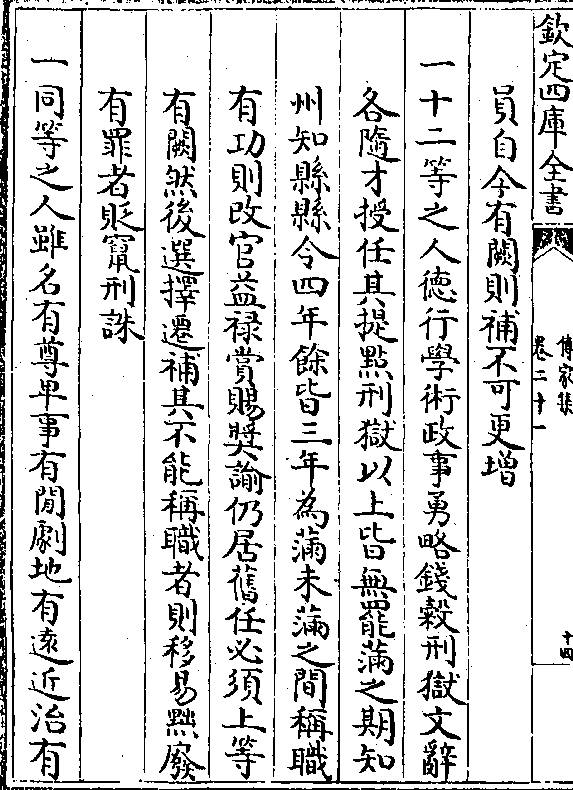 欽定四庫全書
傳家集
卷二十一
十四
員自今有闕則補不可更增
一十二等之人徳行學術政事勇略錢穀刑獄文辭
各隨才授任其提點刑獄以上皆無罷滿之期知
州知縣縣令四年餘皆三年為滿未滿之間稱職
有功則改官益禄賞賜奬諭仍居舊任必須上等
有闕然後選擇遷補其不能稱職者則移易黜廢
有罪者貶竄刑誅
一同等之人雖名有尊卑事有閒劇地有遠近治有